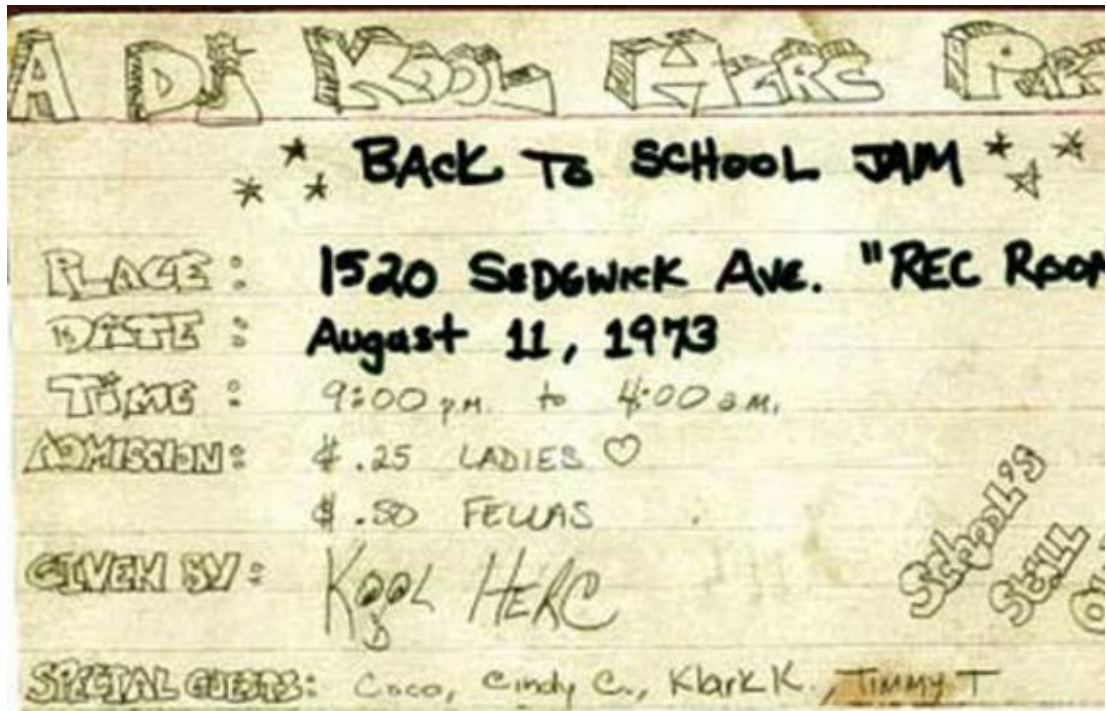 A DJ KOOL HERC PAR
BACK TO SCHOOL JAM
PLACE: 1520 SEDGWICK AVE. "REC ROOM
DATE: August 11, 1973
TIME: 9:00 P.M. to 4:00 a.m.
ADMISSION: $.25 LADIES ♡
$.50 FELLAS
GIVEN BY: KOOL HERC
SPECIAL GUESTS: Coco, Cindy C., Klark K., TIMMY T
School's
Still